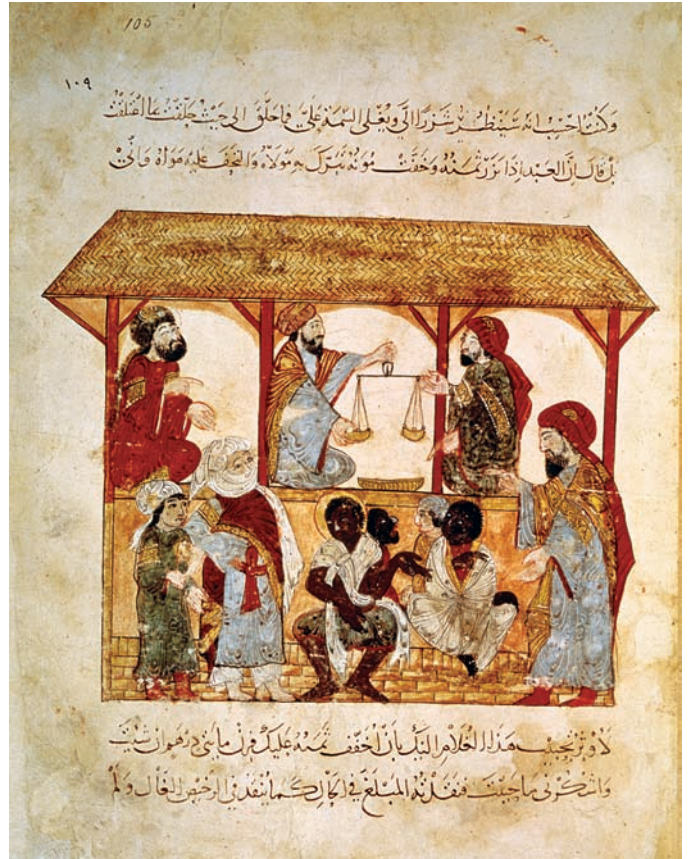 105
١٠٩
وكنت احسب انه سينظر شزرا الي ويغلي السيمة علي فما حلق الى حيث حلقت اعتلقت
بل قال ان العبد اذا نزر ثمنه وخفت مونه تبرك به مولاه والتحف عليه هواه واني
لاوثر تحبيب هذا الغلام اليك بان اخفف ثمنه عليك فزن مايتي درهم ان شيت
واشكر لي ما حييت فنقدته المبلغ في الحال كما ينقد في الرخيص ولم